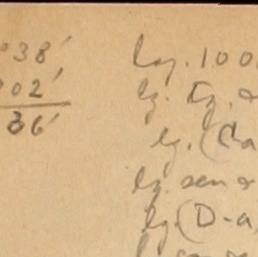 °38′
02′
36′
log. 100
lg. tg. α
lg. (
lg sen α
lg (D-a